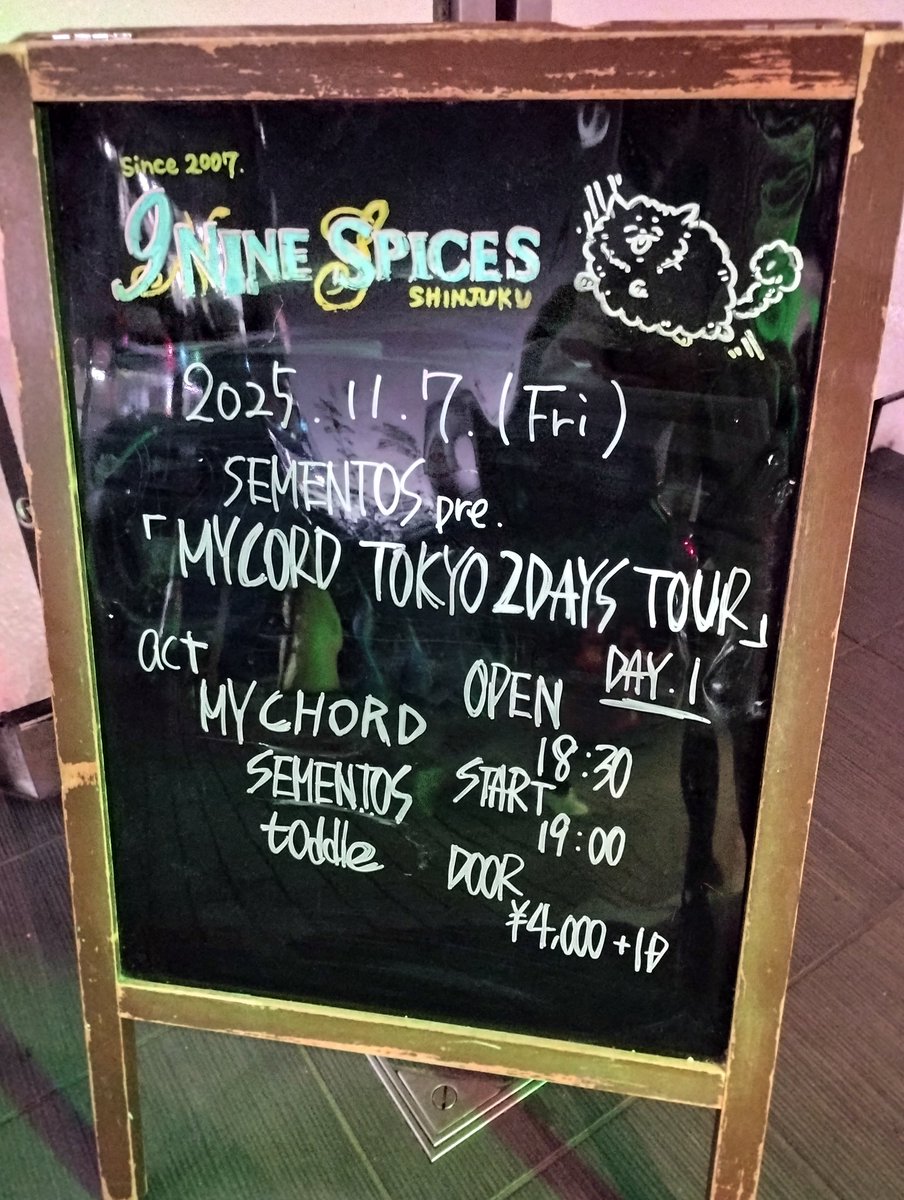 Since 2007.
9 NINE SPICES
SHINJUKU
2025.11.7.(Fri)
SEMENTOS pre.
「MYCORD TOKYO 2DAYS TOUR」
DAY.1
act
MY CHORD
SEMENTOS
toddle
OPEN
18:30
START
19:00
DOOR
¥4,000+1D